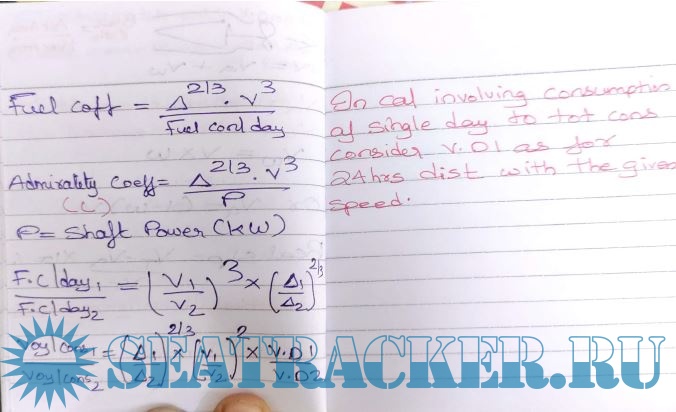 Fuel coff = Δ^2/3 · V^3 / Fuel con/day
Admiralety Coeff = Δ^2/3 · V^3 / P
(C)
P = Shaft Power (kW)
F.C/day1 / F.C/day2 = (V1/V2)^3 × (Δ1/Δ2)^2/3
Voy/cons1 / Voy/cons2 = (Δ1/Δ2)^2/3 × (V1/V2)^2 × V.D1/V.D2
In cal involving consumption
of single day to tot cons
consider V.D1 as for
24hrs dist with the given
speed.
SEATRACKER.RU